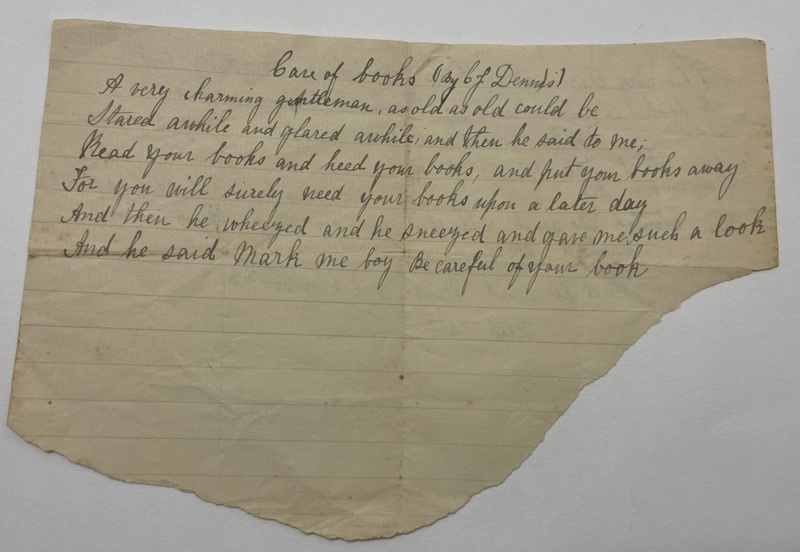 Care of books (by C J Dennis)
A very charming gentleman, as old as old could be
Stared awhile and glared awhile, and then he said to me;
Read your books and heed your books, and put your books away
For you will surely need your books upon a later day
And then he wheezed and he sneezed and gave me such a look
And he said Mark me boy Be careful of your book